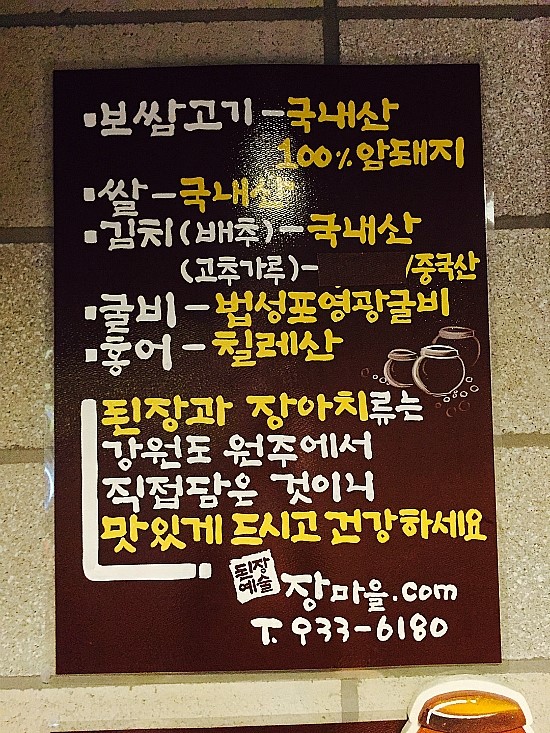 ▪보쌈고기-국내산
100% 암퇘지
▪쌀-국내산
▪김치(배추)-국내산
(고추가루)- /중국산
▪굴비-법성포영광굴비
▪홍어-칠레산
된장과 장아치류는
강원도 원주에서
직접담은 것이니
맛있게 드시고 건강하세요
된장
예술
장마을.com
T. 933-6180